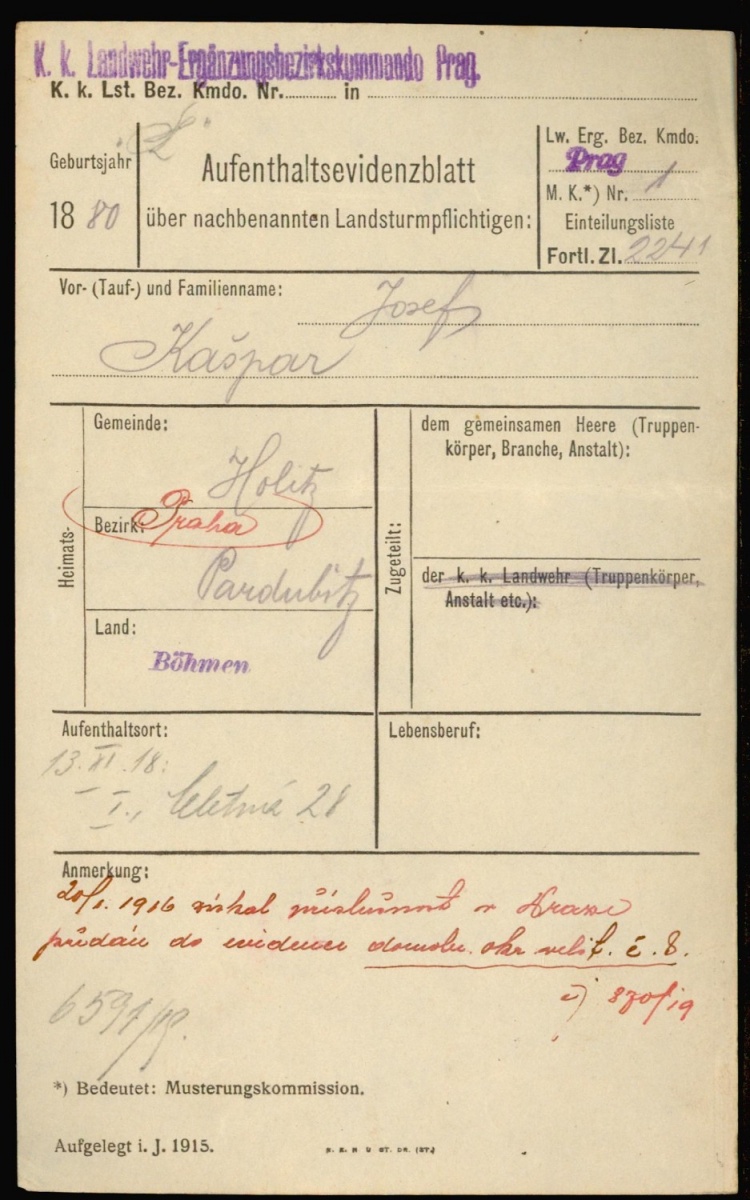 K. k. Landwehr-Ergänzungsbezirkskommando Prag.
K. k. Lst. Bez. Kmdo. Nr. in
"L"
Geburtsjahr
1880
Aufenthaltsevidenzblatt
über nachbenannten Landsturmpflichtigen:
Lw. Erg. Bez. Kmdo.
Prag
M. K.*) Nr. 1
Einteilungsliste
Fortl. Zl. 2241
Vor- (Tauf-) und Familienname:
Josef
Kašpar
Heimats-
Gemeinde:
Holitz
Bezirk: Praha
Pardubitz
Land:
Böhmen
Zugeteilt:
dem gemeinsamen Heere (Truppen-
körper, Branche, Anstalt):
der k. k. Landwehr (Truppenkörper,
Anstalt etc.):
Aufenthaltsort:
13. XI. 18:
I., Celetná 28
Lebensberuf:
Anmerkung:
20/1. 1916 získal příslušnost v Praze
přidán do evidence domobr. okr. velit. č. 8.
870/19
6591/18.
*) Bedeutet: Musterungskommission.
Aufgelegt i. J. 1915.